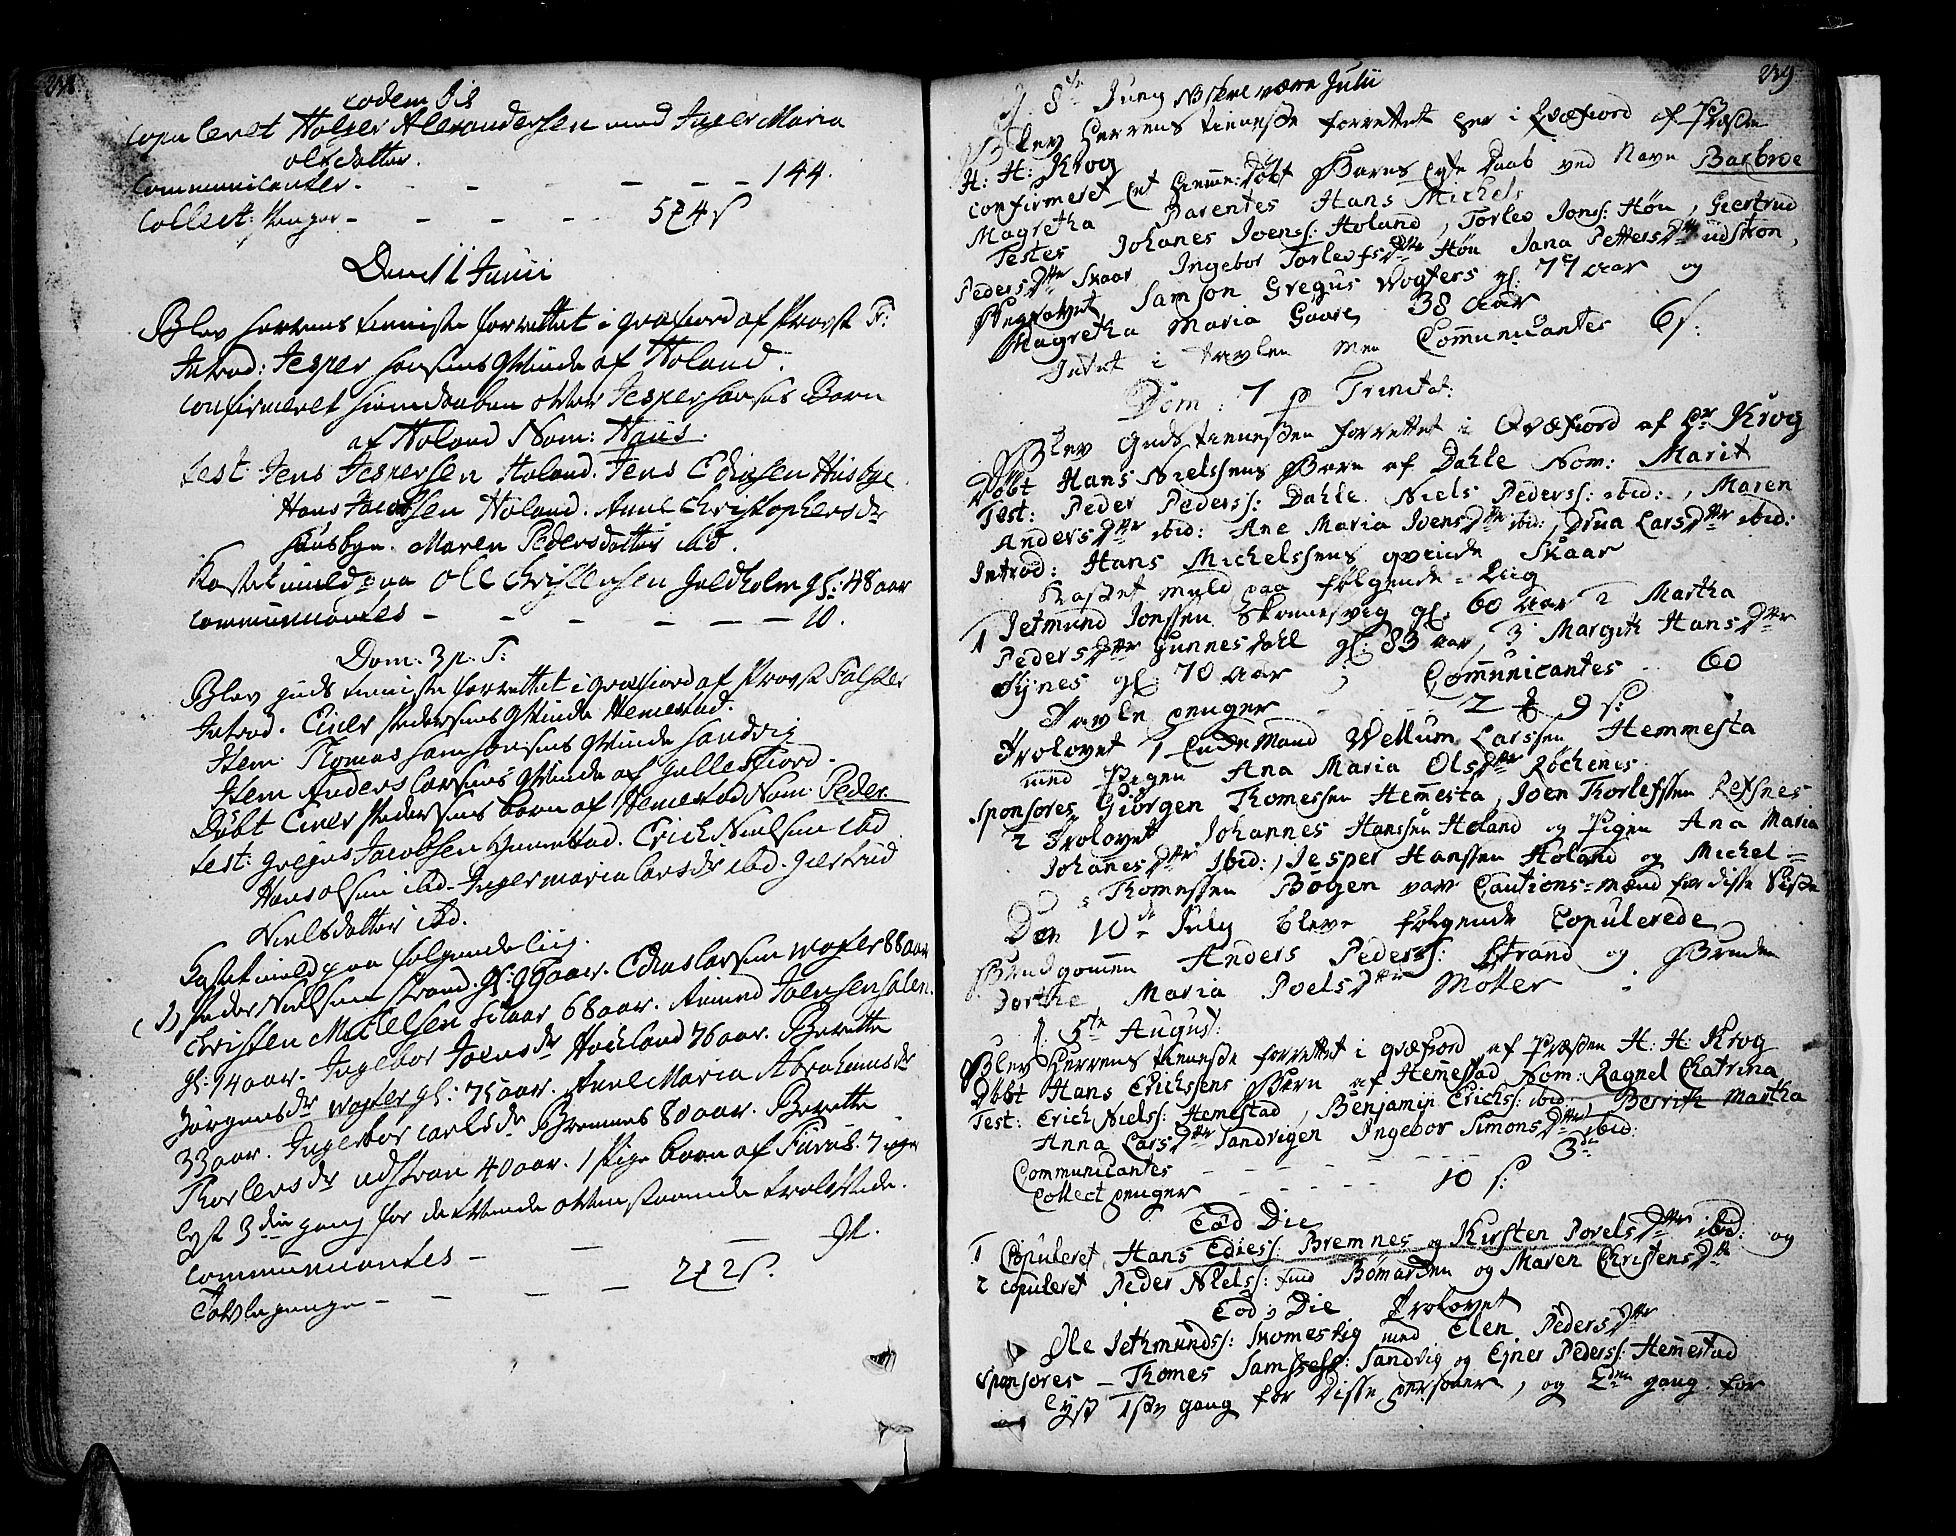 238
Eodem Die
Copuleret Holger Alexandersen med Inger Maria
olsdatter.
Communicanter - - - - - - 144.
Collect: penger - - - - 5 # 4 s
Den 11 Junii
Blev Herrens tieniste forrettet i Qvæfiord af Provst F:
Introd: Jesper Hansens Qvinde af Holand.
confirmeret hiemdaaben over Jesper Hansens Barn
af Holand Nom: Hans.
test: Jens Jespersen Holand. Jens Ediasen Husbye
Hans Jacobsen Holand. Anne Christophersdr
Husbye. Maren Pedersdatter ibd.
Kastet muld paa Ole Christensen Guldholm gl: 48 aar
communicantes - - - - - - 10.
Dom: 3 p. T:
Blev guds tieniste forrettet i Qvæfiord af Provst Falster
Introd. Einer Pedersens Qvinde Hemestad.
Item: Thomas Samsonsens Qvinde Sandvig
Item Anders Larsens Qvinde af Gullesfiord.
Døbt Einer Pedersens barn af Hemestad Nom: Peder.
test: Gregus Jacobsen Hemestad. Erich Nielsen ibd
Hans olsen ibd. Inger maria larsdr ibd. giertrud
Nielsdatter ibd.
Kastet muld paa følgende liig.
(1) Peder Nielsen strand. gl: 95 aar. Edias larsen Voxler 88 aar
Christen Michelsen skaar 68 aar. Amund Joensen salen.
gl: 74 aar. Ingebor Joensdr Houland 76 aar. Beretthe
Jørgensdr Woxler gl: 75 aar. Anne Maria Abrahamsdr
33 aar. Ingebor carlsdr Bremnes 80 aar. Beretthe
Thorlersdr udstran 40 aar. 1 Pige barn af 7 uger
Lyst 3die gang for de tvende ovenstaaende trolovede.
communicantes - - - 91.
Tavlepenge - - - - 2 # 2 s.
239
J. 8de Juny NB skal være Julii
Blev Herrens tieneste forrettet her i Qvæfiord af Præsten
H: H: Krog
confirmeret Et hiemme-døbt Barns Ægte Daab ved Navn Barbroe
Magretha Parentes Hans Michels
Testes Johanes Joenss: Holand, Torlev Jonss: Høu, Giertrud
Pedersdtr Skaar Ingebor Torlevsdtr Høu Jana Pettersdtr udstron,
Begravet, Samson Gregus Woxlers gl: 77 aar og
Magretha Maria Gaare, 38 aar
Intet i tavlen men Communicantes 6 s:
Dom: 7 p Trinitat:
Blev Guds tienesten forrettet i Qvæfiord af Hr Krog
Døbt Hans Nielssens Barn af Dahle Nom: Marit
Test: Peder Pederss: Dahle. Niels Pederss: ibid:, Maren
Andersdtr ibid: Ane Maria Joensdtr ibid:, Drua Larsdtr ibid:
Introd: Hans Michelssens qvinde Skaar
Kastet muld paa følgende Liig
1 Jetmund Jonssen Skomesvig gl: 60 aar 2 Martha
Pedersdtr Gunnesdahl gl: 83 aar, 3 Margith Hansdtr
Synes gl: 70 aar, Communicantes 60
Tavle penger - - - 2 # 9 s:
Trolovet 1 Enckemand Wellum Larssen Hemmesta
med Pigen Ana Maria Olsdtr Røchenes
sponsores Giørgen Thomessen Hemesta, Joen Thorlefssen Refsnes
2 Trolovet Johannes Hanssen Holand og Pigen Ana Maria
Johanesdtr Ibid:, Jesper Hanssen Holand og Michel
Thomessen Bøgen var Cautions-mænd for disse Siste
Den 10de July bleve følgende Copulerede
Brudgommen Anders Pederss: Strand og Bruden
Dorthe Maria Poelsdtr Møller
J. 5te August:
Blev Herrens tieneste forrettet i qvæfiord af Præsten H: H: Krog
Døbt Hans Erichssens Barn af Hemestad Nom: Ragnel Chatrina
Test: Erich Nielss: Hemestad, Benjamin Erichs: ibid: Berrith Martha
Anna Larsdtr Sandvigen Ingebor Simonsdtr ibid:
Communicantes - - - - - - 3de
Collect penger - - - - - 10 s:
Eod Die
1 Copuleret, Hans Ediess: Bremnes og Kirsten Povelsdtr ibid: og
2 copuleret Peder Nielss: fud Bomarken og Maren Christensdtr
Eod: Die Trolovet
Ole Jethmundss: Skomesvig med Elen Pedersdtr
Sponsores - Thomes Samss: Sandvig og Ejner Pederss: Hemestad
Lyst 1ste gang for disse personer, og 2den gang for